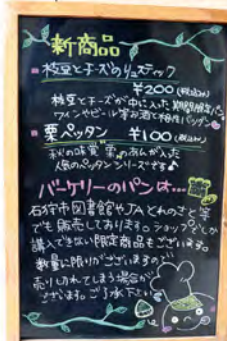 新商品
枝豆とチーズのリュスティック
¥200(税込み)
枝豆とチーズが中に入った期間限定パン
ワインやビール等お酒と相性バツグン
栗ペッタン ¥100(税込み)
秋の味覚 栗のあんが入った
人気のペッタンシリーズです♪
バーケリーのパンは…
石狩市図書館やJAとれのさと等
でも販売しております。ショップでしか
購入できない限定商品もございます。
数量に限りがございますので
売り切れてしまう場合が
ございます。ご了承下さい